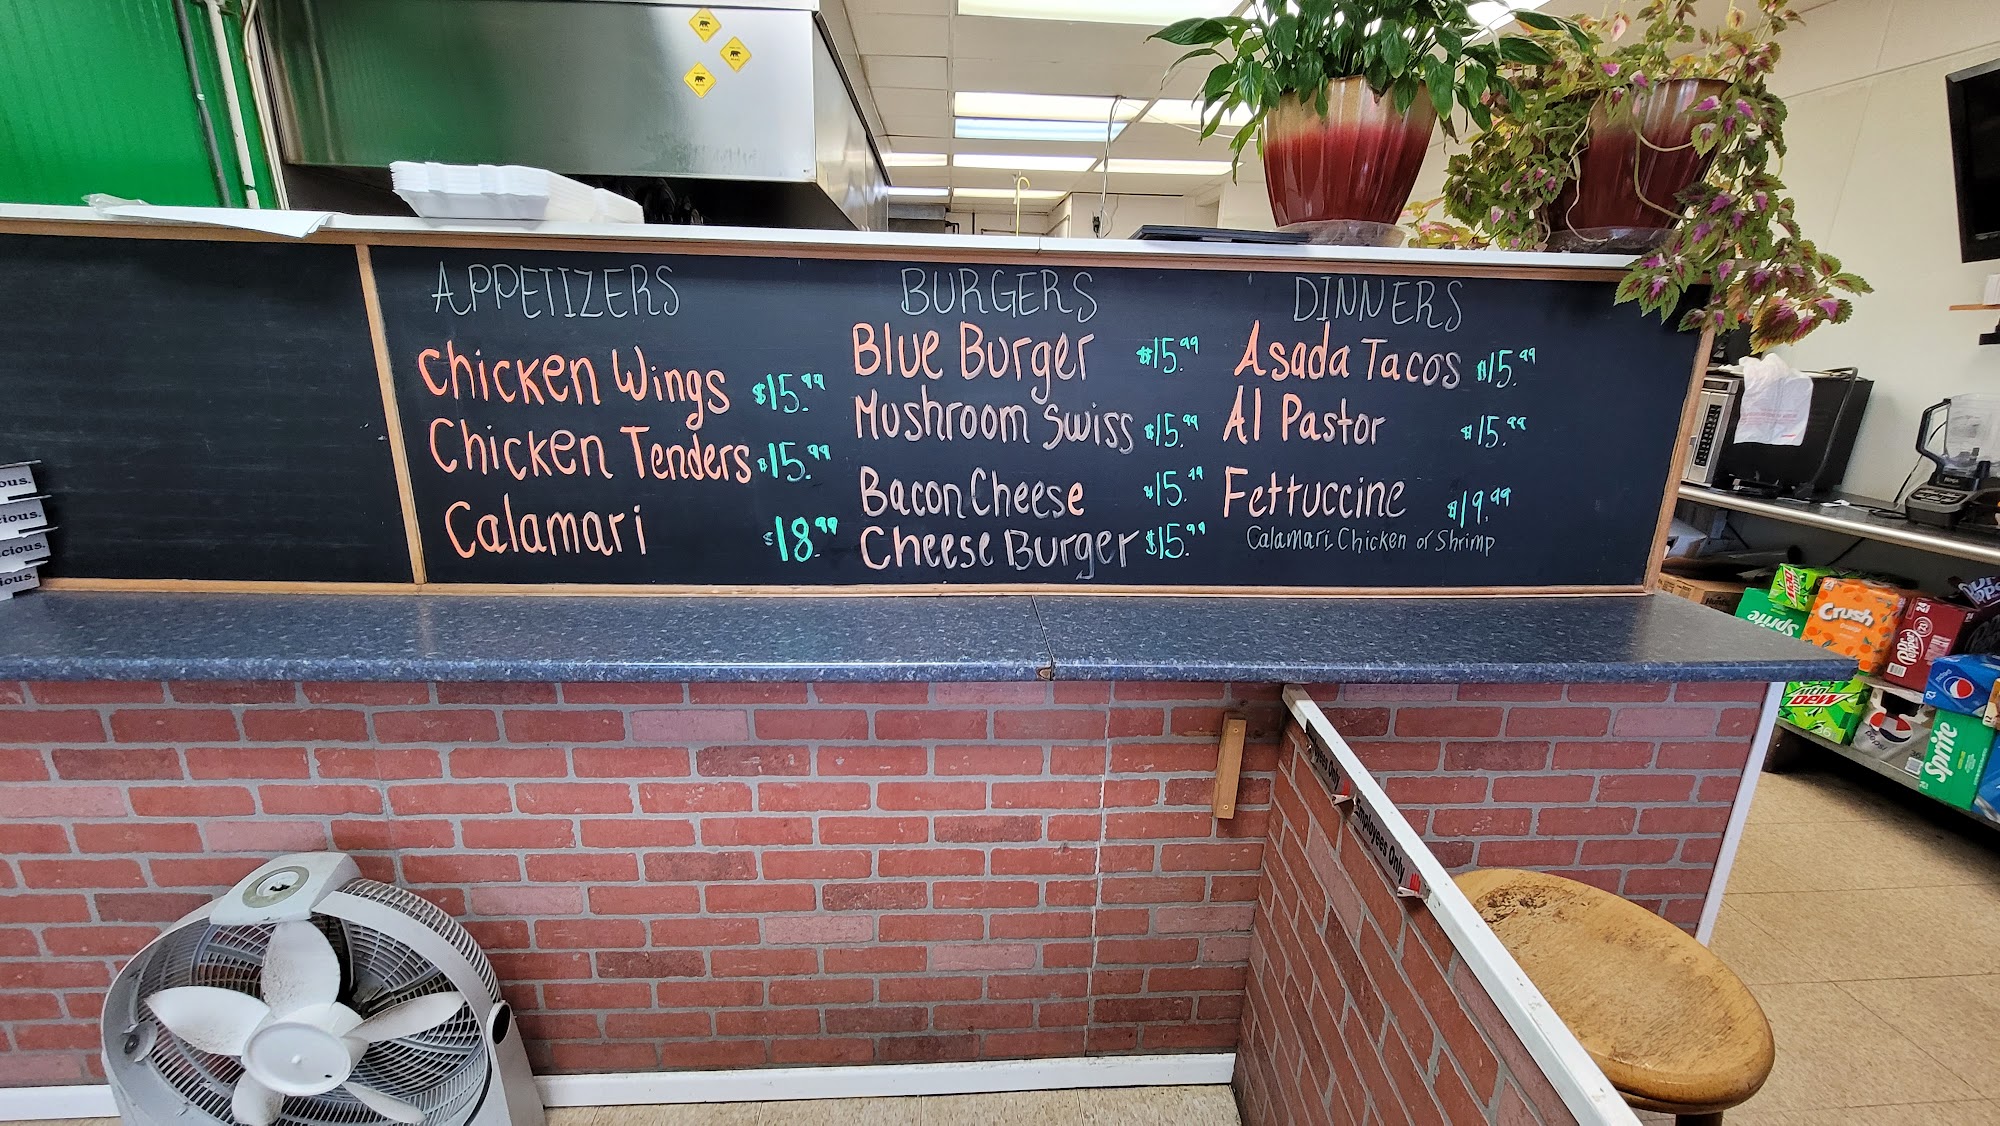 APPETIZERS
Chicken Wings $15.99
Chicken Tenders $15.99
Calamari $18.99
BURGERS
Blue Burger $15.99
Mushroom Swiss $15.99
Bacon Cheese $15.99
Cheese Burger $15.99
DINNERS
Asada Tacos $15.99
Al Pastor $15.99
Fettuccine $19.99
Calamari, Chicken or Shrimp
ous.
cious.
cious.
ious.
Employees Only
Sprite
Crush
Dr Pepper
Mtn Dew
Sprite